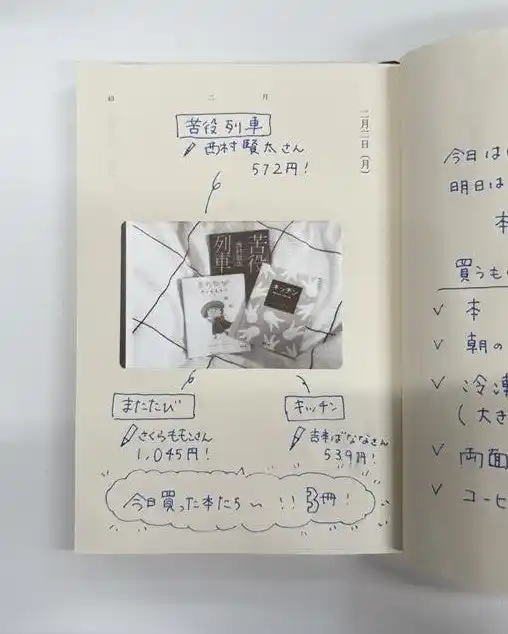 43
二 月
二月二日（月）
苦役列車
西村賢太さん
572円！
苦役
列車
西村賢太
またたび
さくらももこ
キッチン
またたび
さくらももこさん
1,045円！
キッチン
吉本ばななさん
539円！
今日買った本たち〜 !! 3冊！
今日は
明日は
本
買うも
✓ 本
✓ 朝の
✓ 冷凍
（大き
✓ 両面
✓ コーヒ